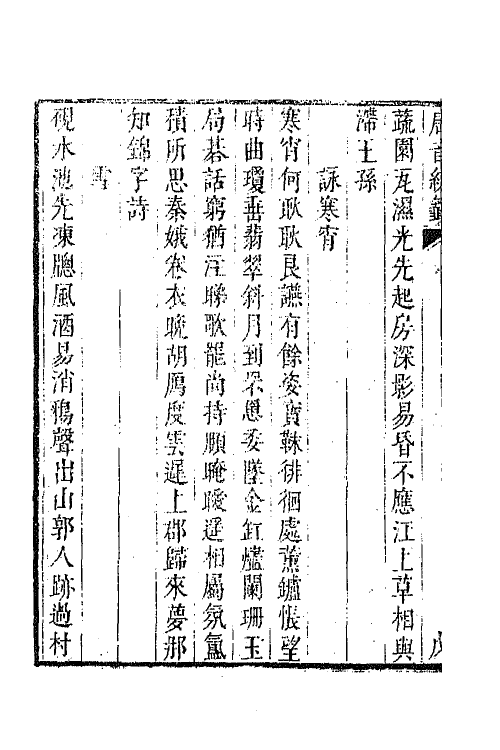 唐音統籤
蔬園瓦濕光先起房深影易昏不應江上草相與
滯王孫
詠寒宵
寒宵何耿耿良讌有餘姿寶靺徘徊處薰鑪悵望
時曲瓊垂翡翠斜月到罘罳委墜金釭燼闌珊玉
局碁話窮猶注睇歌罷尚持頤晻曖遥相屬氛氳
積所思秦娥卷衣晚胡鴈度雲遲上郡歸來夢那
知錦字詩
雪
硯水池先凍牕風酒易消鴉聲出山郭人跡過村
戊